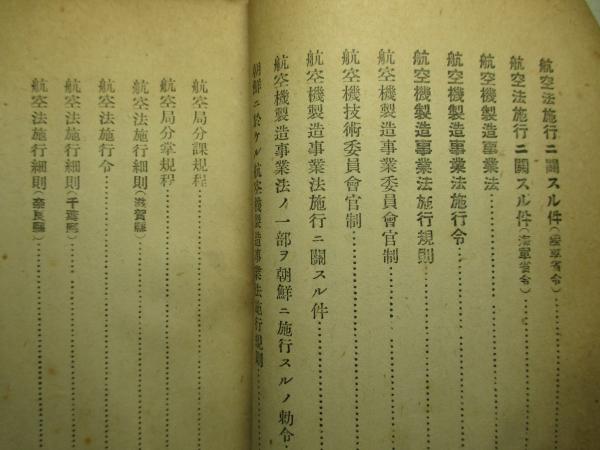 航空法施行ニ關スル件(陸軍省令)
航空法施行ニ關スル件(海軍省令)
航空機製造事業法
航空機製造事業法施行令
航空機製造事業法施行規則
航空機製造事業委員會官制
航空機技術委員會官制
航空機製造事業法施行ニ關スル件
航空機製造事業法ノ一部ヲ朝鮮ニ施行スルノ勅令
朝鮮ニ於ケル航空機製造事業法施行規則
航空局分課規程
航空局分掌規程
航空法施行細則(滋賀縣)
航空法施行令
航空法施行細則(千葉縣)
航空法施行細則(奈良縣)